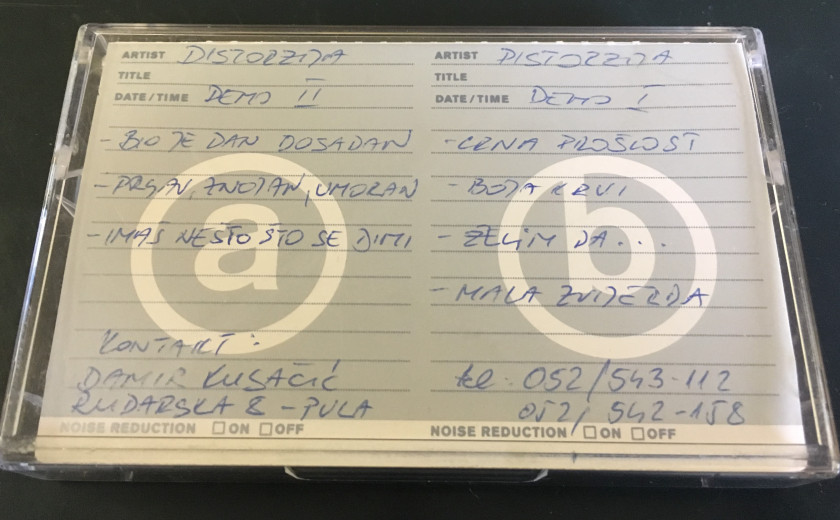 ARTIST DISTORZIJA
TITLE
DATE/TIME DEMO II
- BIO JE DAN DOSADAN
- PRGAV, ZNOJAN, UMORAN
- IMAŠ NEŠTO ŠTO SE DIMI
a
KONTAKT:
DAMIR KUSAČIĆ
RUDARSKA 8 - PULA
NOISE REDUCTION ON OFF
ARTIST DISTORZIJA
TITLE
DATE/TIME DEMO I
- CRNA PROŠLOST
- BOJA KRVI
- ŽELIM DA....
- MALA ZVIJERDA
b
tel. 052/543-112
052/ 542-158
NOISE REDUCTION ON OFF